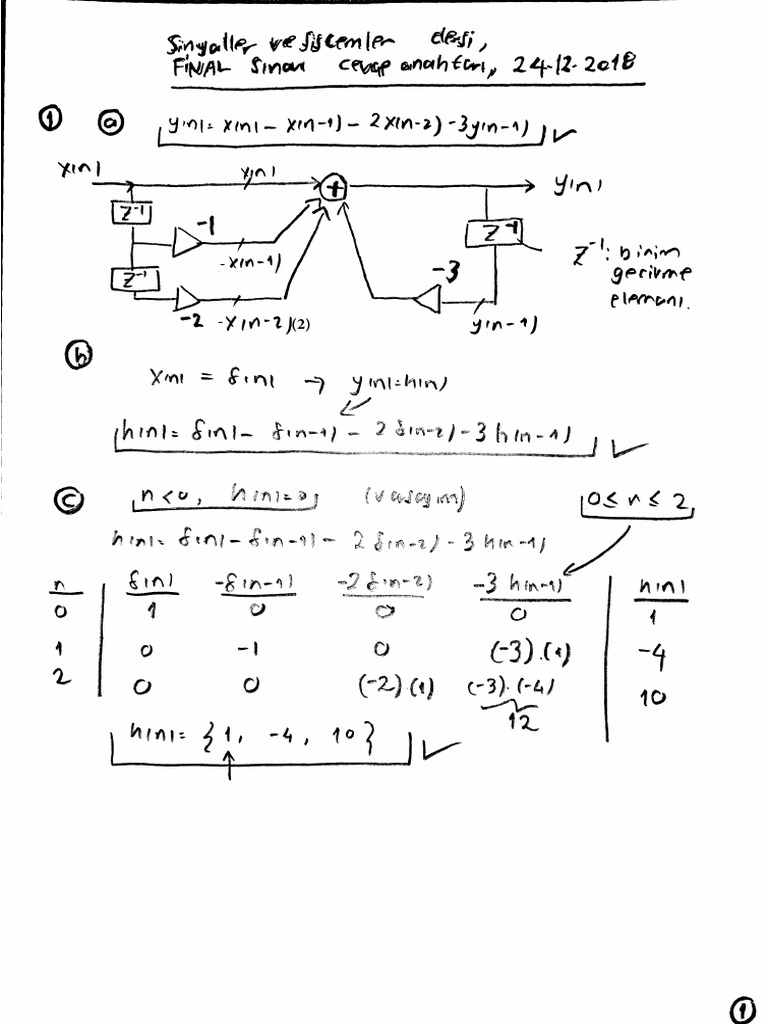 Sinyaller ve Sistemler dersi,
FİNAL Sınavı cevap anahtarı, 24-12-2018
① ⓐ y[n] = x[n] - x[n-1] - 2x[n-2] - 3y[n-1] ✓
x[n] x[n] + y[n]
z⁻¹ -1 z⁻¹
-x[n-1] -3 z⁻¹: birim
z⁻¹ gecikme
-2 -x[n-2](2) y[n-1] elemanı.
ⓑ
x[n] = δ[n] → y[n] = h[n]
h[n] = δ[n] - δ[n-1] - 2δ[n-2] - 3h[n-1] ✓
ⓒ n<0, h[n]=0 (varsayım) 0 ≤ n ≤ 2
h[n] = δ[n] - δ[n-1] - 2δ[n-2] - 3h[n-1]
n δ[n] -δ[n-1] -2δ[n-2] -3h[n-1] h[n]
0 1 0 0 0 1
1 0 -1 0 (-3).(1) -4
2 0 0 (-2)(1) (-3).(-4) 10
12
h[n] = {1, -4, 10} ✓
↑
①